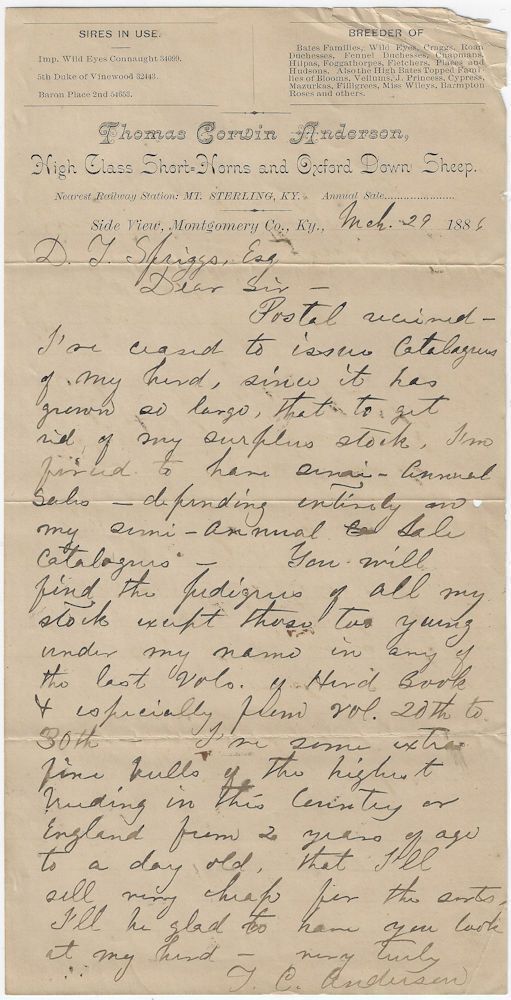 SIRES IN USE.
Imp. Wild Eyes Connaught 34099.
5th Duke of Vinewood 62443.
Baron Place 2nd 54653.
BREEDER OF
Bates Families, Wild Eyes, Craggs, Roan
Duchesses, Fennel Duchesses, Chapmans,
Hilpas, Foggathorpes, Fletchers, Places and
Hudsons. Also the High Bates Topped Fami-
lies of Blooms, Vellums, J. Princess, Cypress,
Mazurkas, Filligrees, Miss Wileys, Barmpton
Roses and others.
Thomas Corwin Anderson,
High Class Short=Horns and Oxford Down Sheep.
Nearest Railway Station: MT. STERLING, KY. Annual Sale
Side View, Montgomery Co., Ky., Mch. 29 1886
D. T. Spriggs, Esq
Dear Sir —
Postal received —
I've ceased to issue Catalogues
of my herd, since it has
grown so large, that to get
rid of my surplus stock, I'm
forced to have semi-Annual
Sales — depending entirely on
my semi-annual Sale
Catalogues — You will
find the pedigrees of all my
stock except those too young
under my name in any of
the last Vols. of Herd Book
& especially from vol. 20th to
30th — I've some extra
fine bulls of the highest
breeding in this Country or
England from 2 years of age
to a day old, that I'll
sell very cheap for the sorts,
I'll be glad to have you look
at my herd — very truly
T. C. Anderson